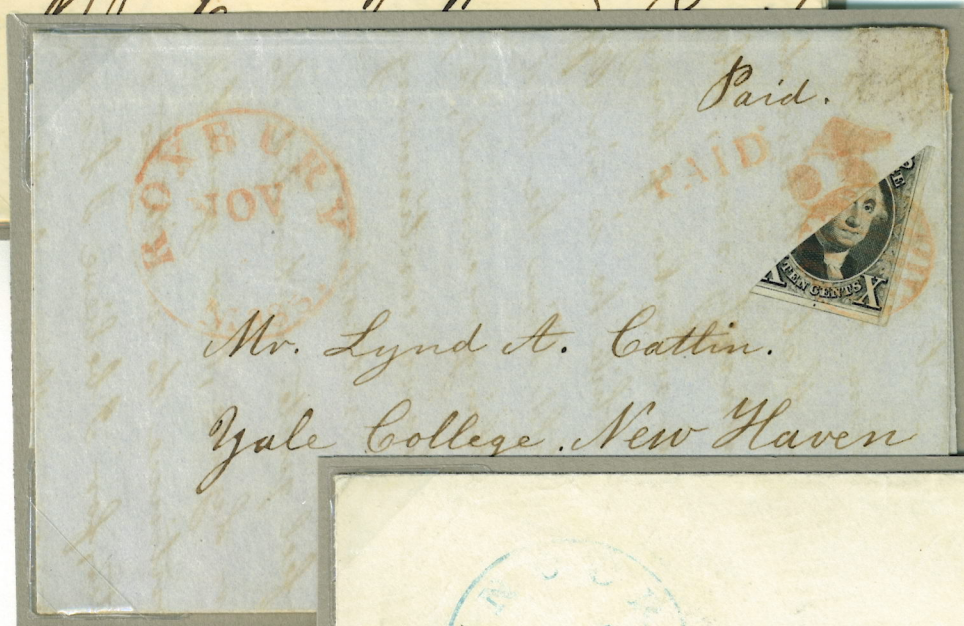 Paid.
PAID 5
ROXBURY
NOV
MASS
X TEN CENTS X
Mr. Lynd A. Catlin.
Yale College. New Haven